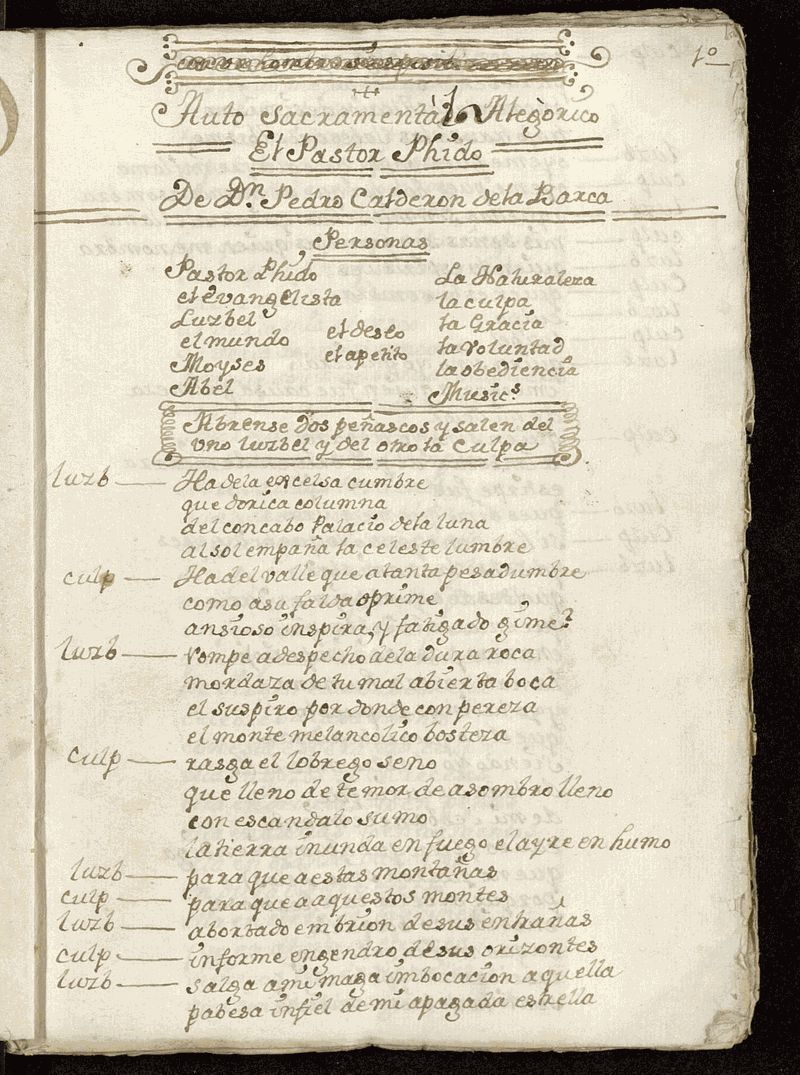 1º
Auto Sacramentál Alegòrico
El Pastor Phido
De Dn. Pedro Calderon dela Barca
Personas
Pastor Phido
el evangelista
Luzbel
el mundo
Moyses
Abel
el deseo
el apetito
La Naturaleza
la culpa
la Gracia
la Voluntad
la obediencia
Musics.
Abrense dos peñascos y salen del
uno luzbel y del otro la Culpa
luzb — Ha dela excelsa cumbre
que dorica columna
del concabo Palacio dela luna
al sol empaña la celeste lumbre
culp — Ha del valle que a tanta pesadumbre
como a su falda oprime
ansioso inspira, y fatigado gime?
luzb — rompe a despecho dela dura roca
mordaza de tu mal abierta boca
el suspiro por donde con pereza
el monte melancolico bosteza
culp — rasga el lobrego seno
que lleno de temor de asombro lleno
con escandalo sumo
la tierra inunda en fuego el ayre en humo
luzb — para que a estas montañas
culp — para que a aquestos montes
luzb — abortado embrion de sus entrañas
culp — informe engendro de sus orizontes
luzb — salga a mi maga imbocacion aquella
pabesa infiel de mi apagada estrella